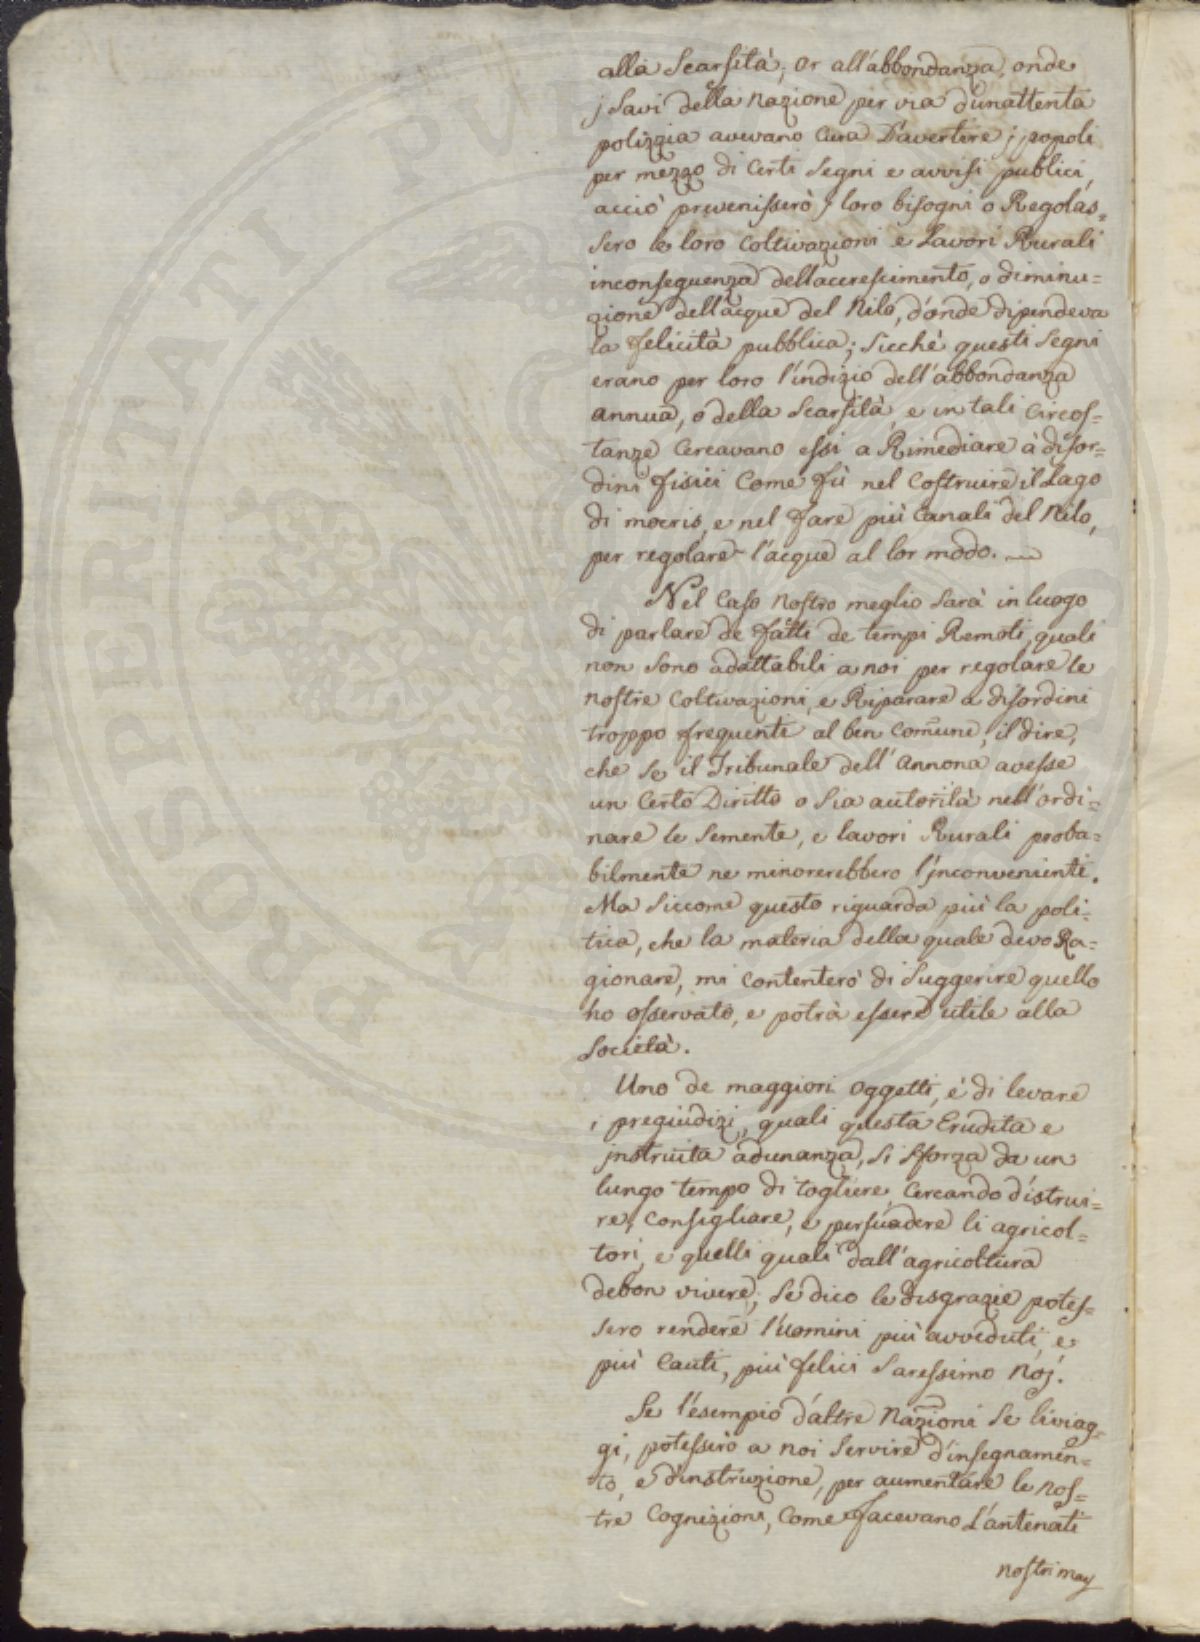 alla Scarsità, or all'abbondanza, onde
j Savi della Nazione per via d'un attenta
polizzia avevano Cura D'avertire j popoli
per mezzo di Certi Segni e avvisi publici,
acciò prevenisserò j loro bisogni o Regolas=
sero le loro Coltivazioni e Lavori Rurali
inconseguenza dell'accrescimento, o diminu=
zione dell'acque del Nilo, d'onde dipendeva
la felicità pubblica; Sicchè questi Segni
erano per loro l'indizio dell'abbondanza
annua, o della Scarsità e in tali Circos=
tanze Cercavano essi a Rimediare à disor=
dini fisici Come fù nel Costruire il Lago
di moeris, e nel fare più Canali del Nilo,
per regolare l'acque al lor modo.
Nel Caso Nostro meglio Sarà in luogo
di parlare de fatti de tempi Remoti, quali
non Sono adattabili a noi per regolare le
nostre Coltivazioni, e Riparare a disordini
troppo frequenti al ben Comune, il dire,
che Se il Tribunale dell'Annona avesse
un Certo Diritto o Sia autorità nell'ordi=
nare le Semente, e lavori Rurali proba=
bilmente ne minorerebbero l'jnconvenienti.
Ma Siccome questo riguarda più la poli=
tica, che la materia della quale devo Ra=
gionare, mi Contenterò di Suggerire quello
ho osservato, e potrà essere utile alla
Società.
Uno de maggiori Oggetti, è di levare
i pregiudizi, quali questa Erudita e
jnstruita adunanza, Si Sforza da un
lungo tempo di togliere, Cercando d'istrui=
re, Consigliare, e persuadere li agricol=
tori, e quelli quali dall'agricoltura
debon vivere; Se dico le disgrazie potes=
sero rendere l'uomini più avveduti, e
più Cauti, più felici Saressimo Noj.
Se l'esempio d'altre Nazioni Se li viag=
gi, potesserò a noi Servire d'insegnamen=
to, e d'instruzione, per aumentare le nos=
tre Cognizioni, Come facevano L'antenati
nostri may